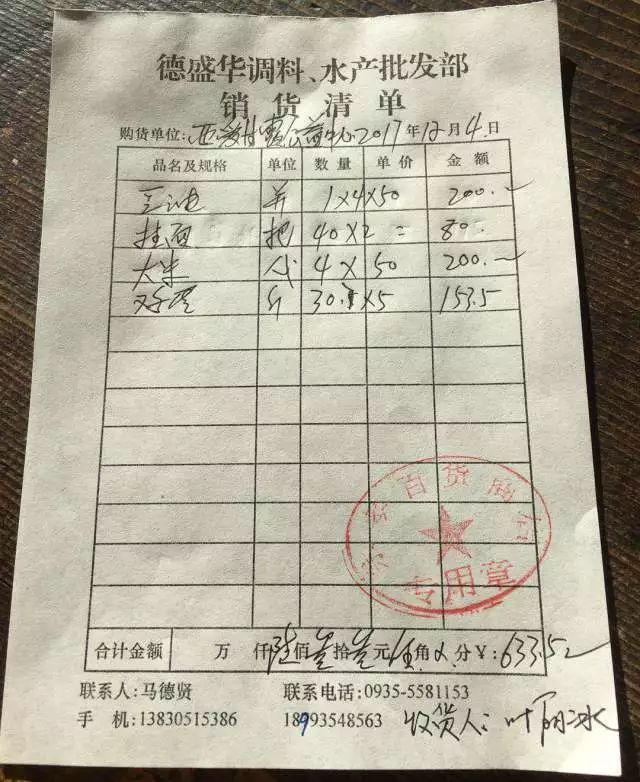 德盛华调料、水产批发部
销货清单
购货单位: 2017年12月4日
品名及规格 单位 数量 单价 金额
1x4x50 200.-
挂面 把 40x2 = 80.-
大米 代 4x50 200.-
斤 30. x5 153.5
百货
专用章
合计金额 万 仟陆佰叁拾叁元伍角 分¥:633.5
联系人:马德贤 联系电话:0935-5581153
手 机:13830515386 18993548563 收货人:叶丽冰